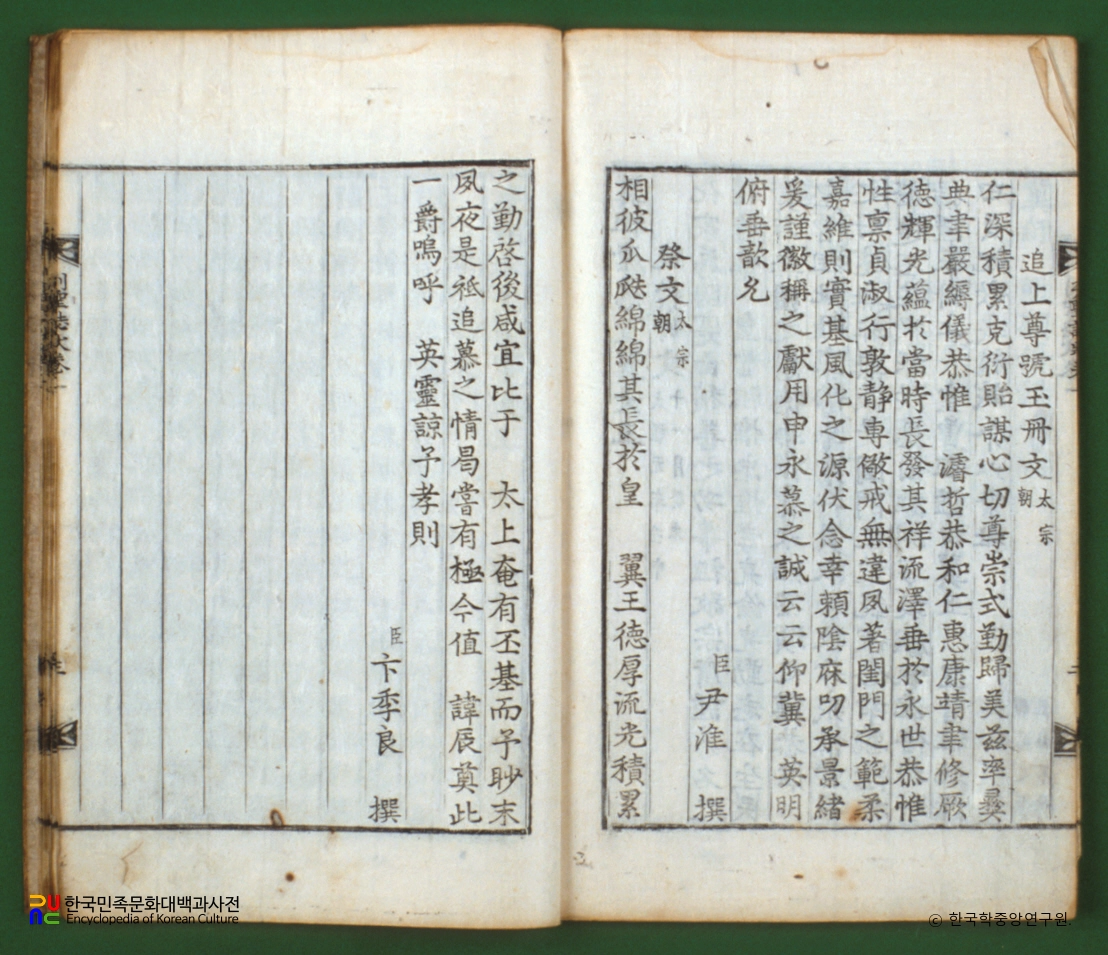 追上尊號玉冊文 太宗朝
仁深積累克衍貽謀心切尊崇式勤歸美玆率彝
典聿嚴縟儀恭惟 濬哲恭和仁惠康靖聿修厥
德輝光蘊於當時長發其祥流澤垂於永世恭惟
性禀貞淑行敦静專儆戒無違夙著閨門之範柔
嘉維則實基風化之源伏念幸賴陰庥叨承景緒
爰謹徽稱之獻用申永慕之誠云云仰冀 英明
俯垂歆允
臣 尹淮 撰
祭文 太宗朝
相彼瓜瓞綿綿其長於皇 翼王德厚流光積累
之勤啓後咸宜比于 太上奄有丕基而予眇末
夙夜是祗追慕之情曷嘗有極今值 諱辰奠此
一爵嗚呼 英靈諒予孝則
臣 卞季良 撰
한국민족문화대백과사전
Encyclopedia of Korean Culture
© 한국학중앙연구원.